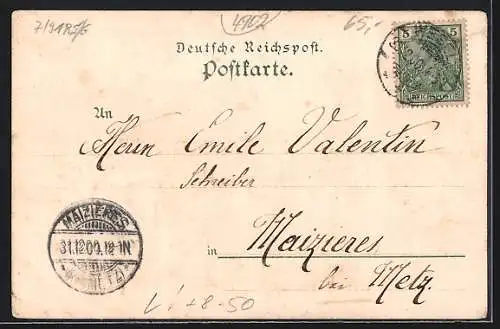 4962
65,-
Deutsche Reichspost.
Postkarte.
5 5
REICHSPOST
An
Herrn Emile Valentin
Schreiber
in Maizieres
bei Metz.
MAIZIERES
31.12.00.
L! +8-50